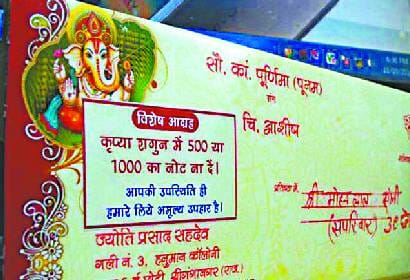 सौ. कां. पूर्णिमा (पूनम)
संग
चि. आशीष
विशेष आग्रह
कृप्या शगुन में 500 या
1000 का नोट ना दें।
आपकी उपस्थिति ही
हमारे लिये अमूल्य उपहार है।
ज्योति प्रसाद सहदेव
गली नं. 3, हनुमान कॉलोनी
श्री मोहन लाल
(सपरिवार)
श्रीगंगानगर (राज.)